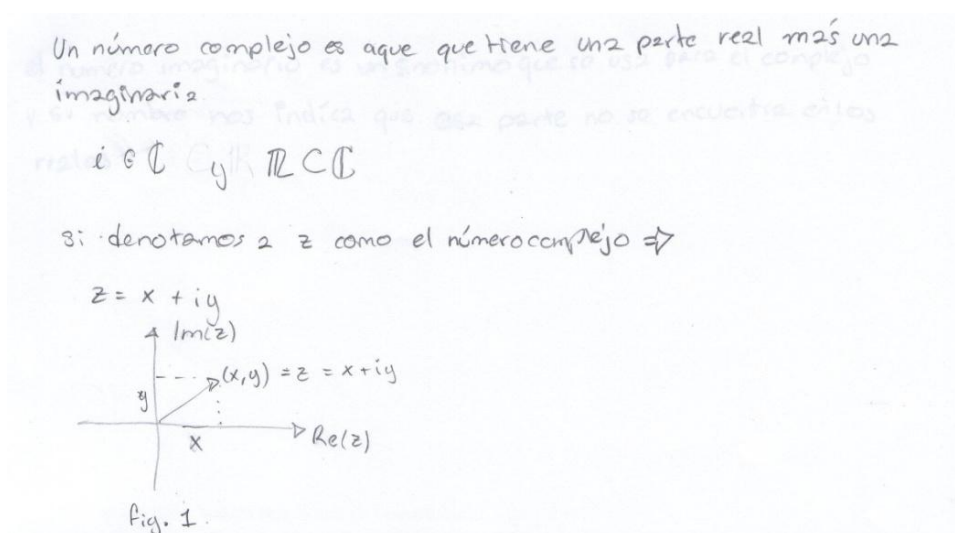 Un número complejo es aque que tiene una parte real más una
imaginaria
i ∈ ℂ y ℝ ⊂ ℂ
si denotamos a z como el número complejo ⇒
z = x + iy
Im(z)
(x,y) = z = x + iy
y
x
Re(z)
fig. 1.